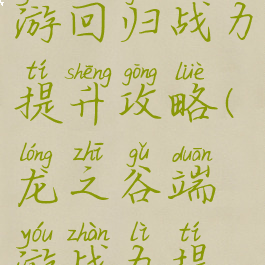 游回归战力
tí shēng gōng lüè
提升攻略(
lóng zhī gǔ duān
龙之谷端
yóu zhàn lì tí
游战力提